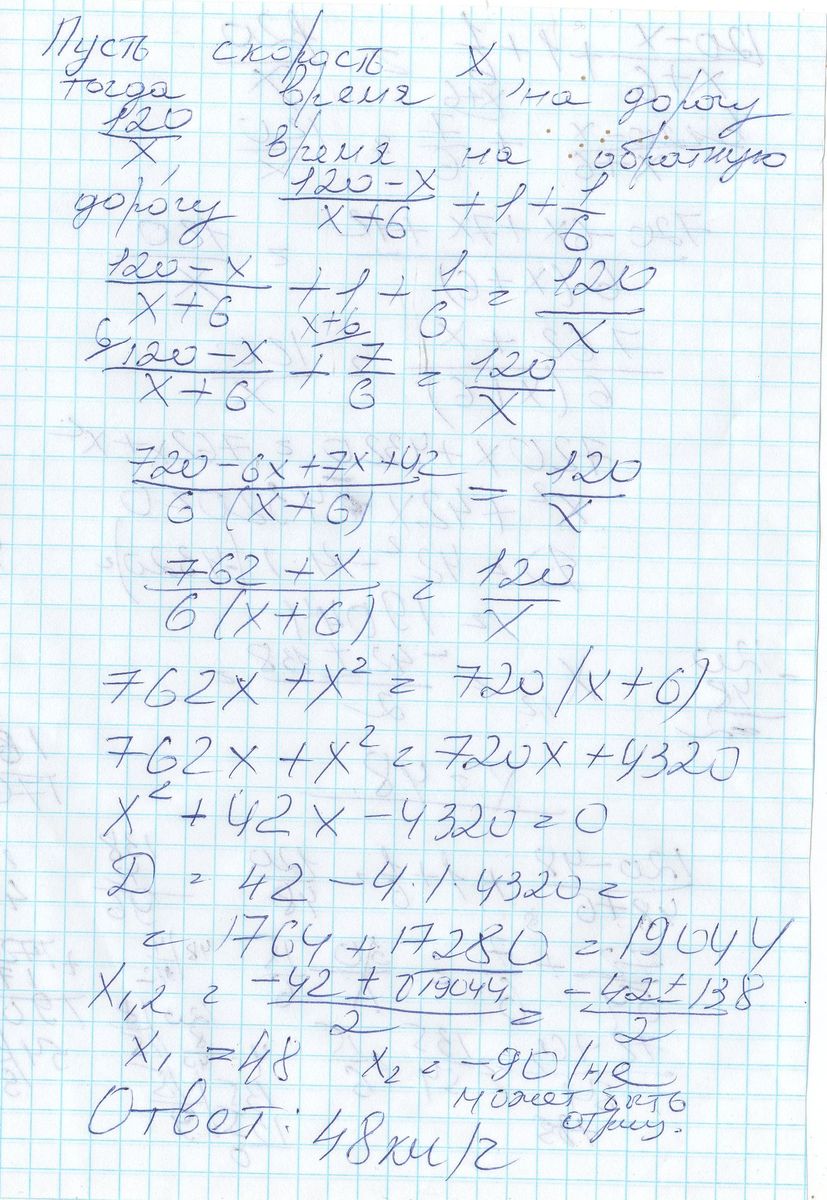 Пусть скорость х
тогда время на дорогу
120/x, время на обратную
дорогу (120-x)/(x+6) + 1 + 1/6
(120-x)/(x+6) + 1 + 1/6 = 120/x
6/ (120-x)/(x+6) + x+6/ 7/6 = 120/x
(720-6x+7x+42)/(6(x+6)) = 120/x
(762+x)/(6(x+6)) = 120/x
762x+x² = 720(x+6)
762x+x² = 720x+4320
x²+42x-4320=0
D = 42-4·1·4320=
= 1764+17280=19044
x1,2 = (-42±√19044)/2 = (-42±138)/2
x1 = 48 x2 = -90 (не
может быть
отриц.
Ответ: 48 км/ч